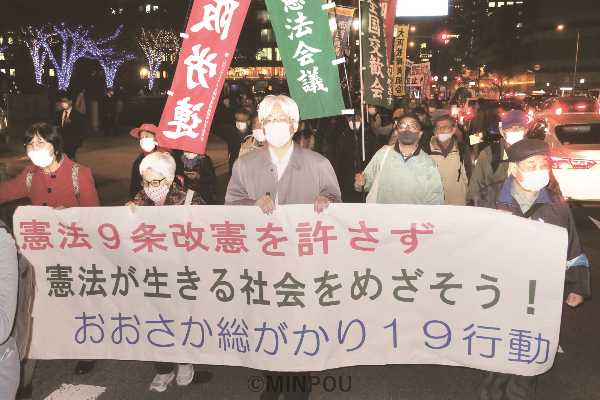 阪労連
憲法会議
全国交流会
憲法9条改憲を許さず
憲法が生きる社会をめざそう!
おおさか総がかり19行動
©MINPOU